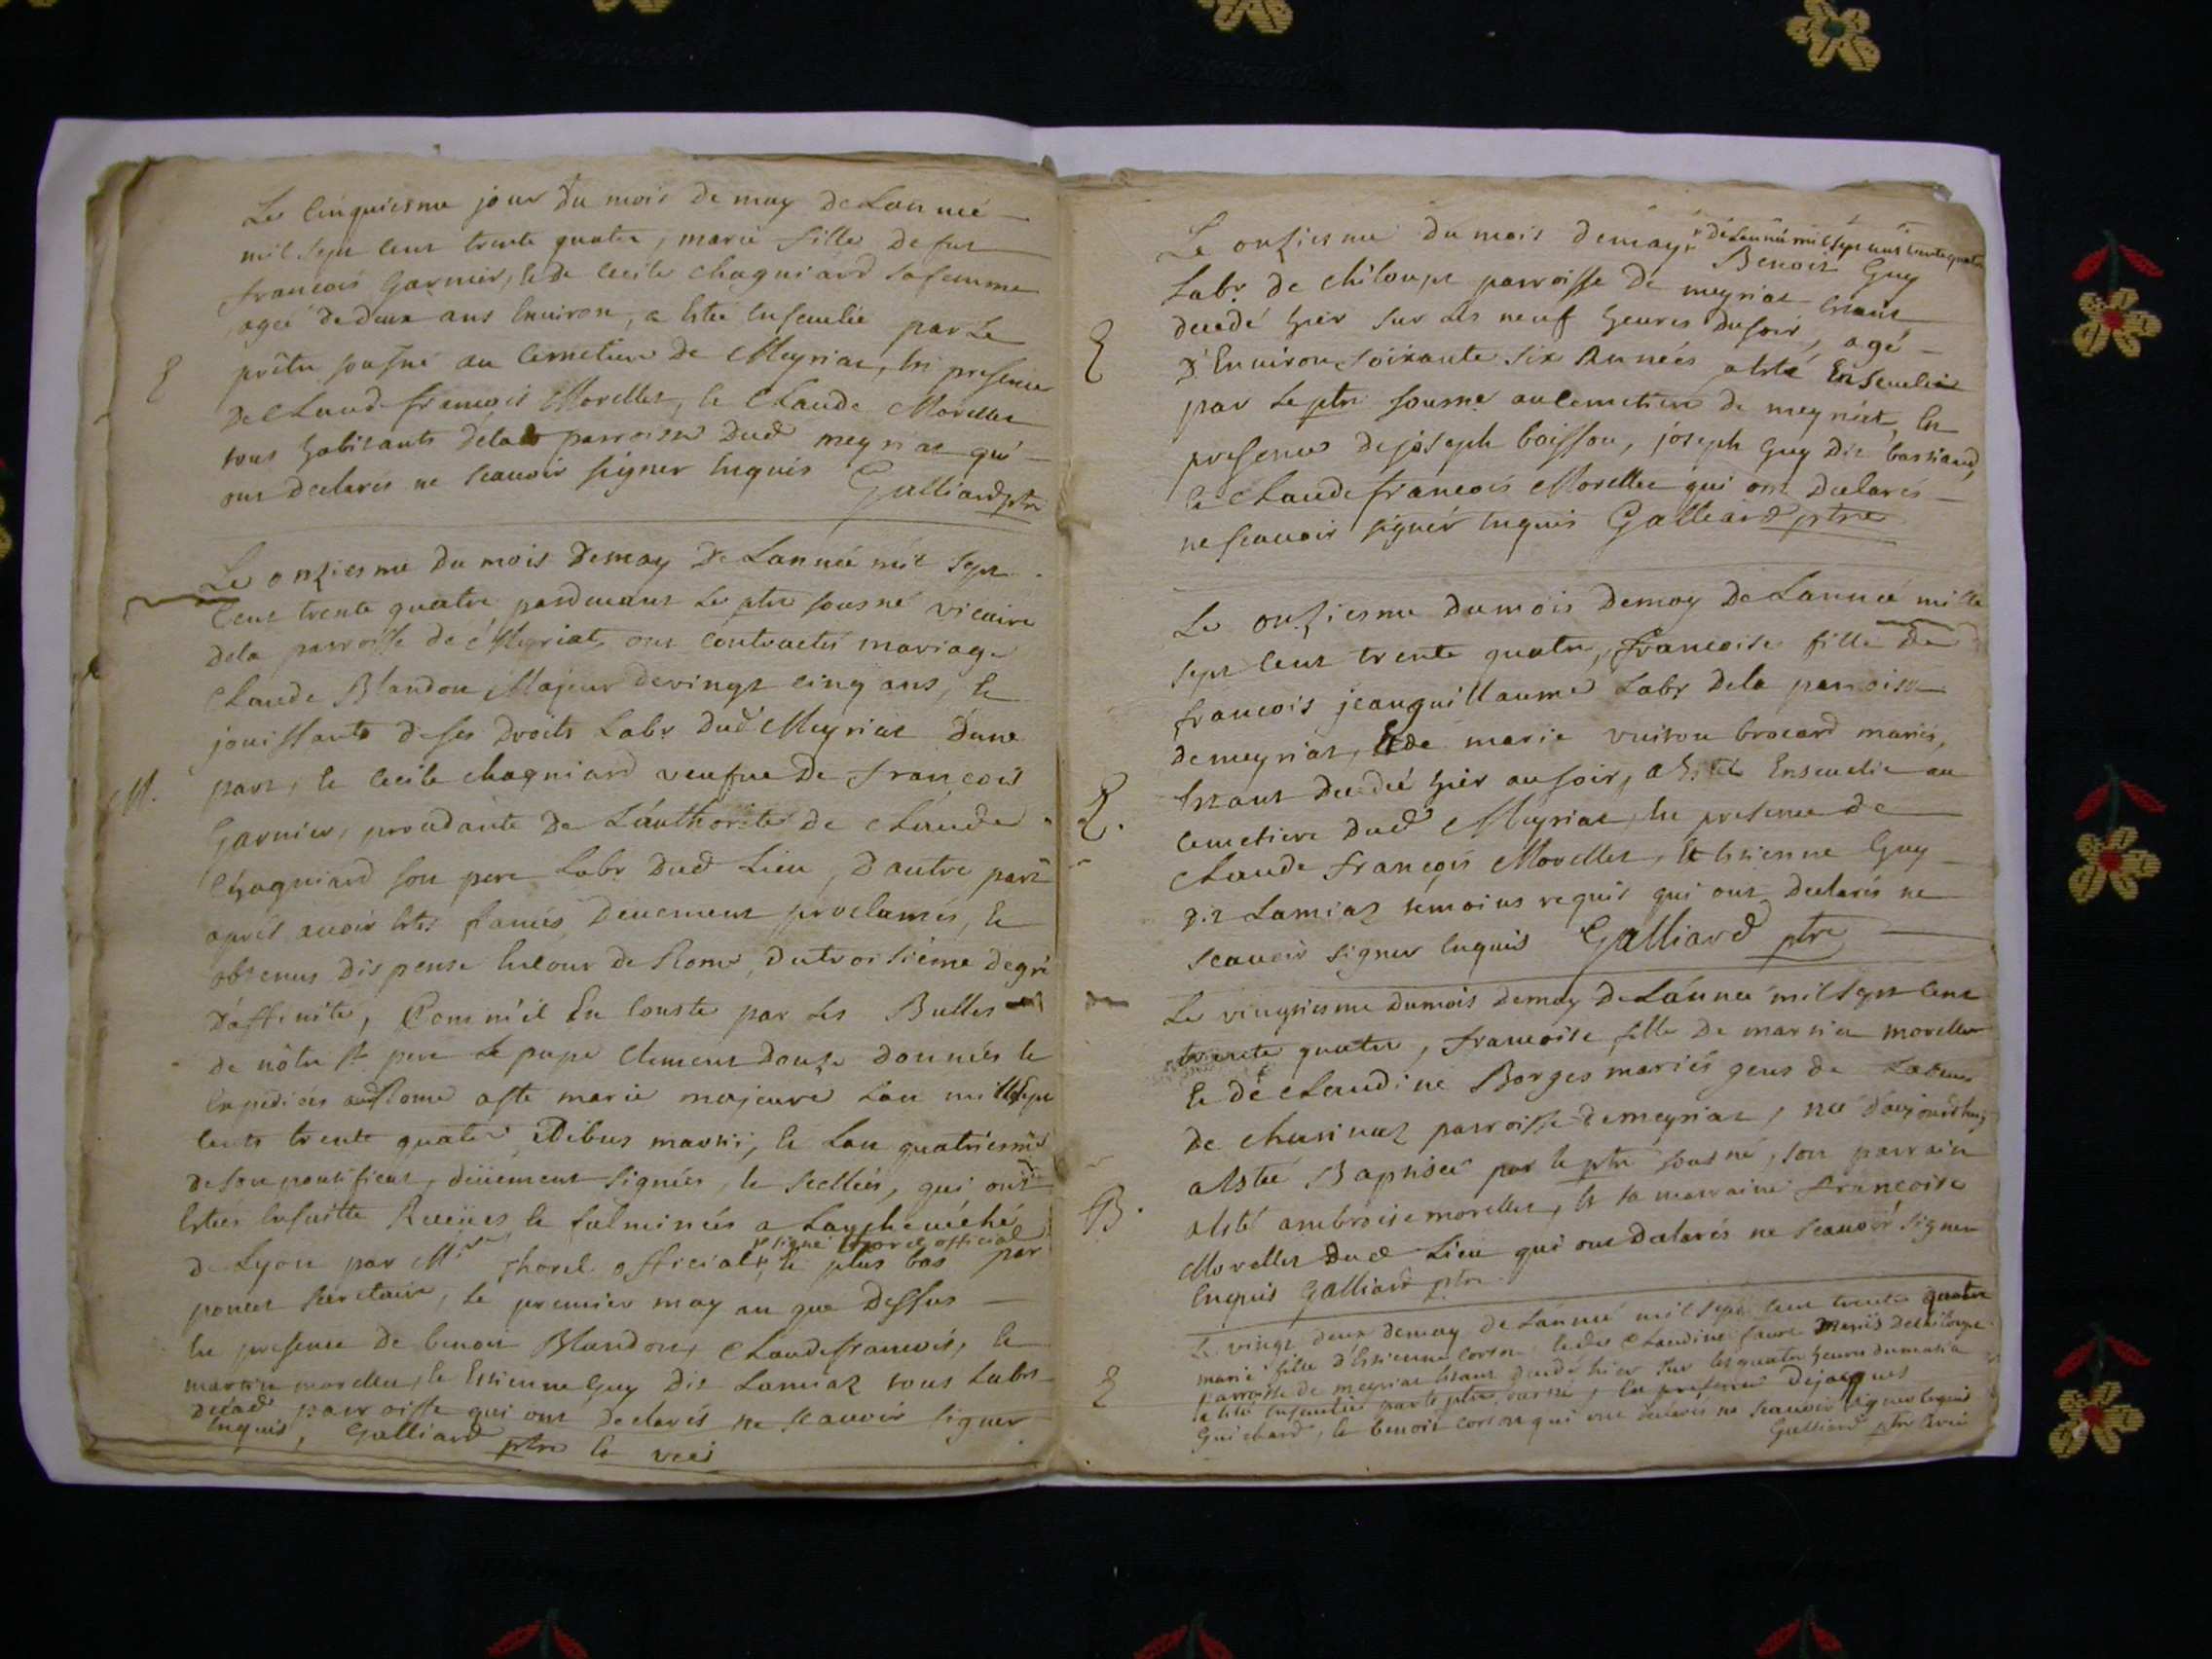 Le cinquiesme jour du mois de may de Lannée
mil sept cent trente quatre, marie fille de fut
francois Garnier, et de Cecile chagniard sa femme
agée de deux ans Environ, a Esté Ensevelie par Le
E
prêtre sousné au Cemetiere de Meyriat, En presence
de Claude francois Morellet, et Claude Morellet
tous habitants de la parroisse dud meyriat qui
ont declarés ne scavoir signer Enquis Galliard ptre
Le onziesme du mois de may de Lannée mil sept
Cent trente quatre pardevant Le ptre sousné vicaire
dela parroisse de Meyriat ont contractés mariage
Claude Blandon Majeur de vingt cinq ans, et
jouissants de ses droits Labr dud Meyriat d'une
M.
part, et Cecile chagniard veufve de francois
Garnier, procedante de L'authorité de Claude
Chagniard son pere Labr dud Lieu, d'autre part
aprés avoir Estés fiancés, deuement proclamés, et
obtenus dispense En Cour de Rome, du troisiéme degré
d'affinité, Comm'il En Conste par Les Bulles
de nôtre st pere Le pape Clement douze données et
Expediées a Rome aste marie majeure Lan mil sept
cents trente quatre Idibus martii, et Lan quatriesme
de son pontificat, düement signées, et scellées, qui ont
Estées Ensuitte Receües et fulminées a Larchevéché
de Lyon par Mr thorel official, et plus bas par
signé thorel official
poncet secretaire, Le premier may an que dessus
En presence de benoit Blandon, Claude francois, et
martin morellet, et Estienne Guy dit Lamiaz tous Labrs
dud parroisse qui ont declarés ne scavoir signer
Enquis, Galliard ptre et vicé
Le onziesme du mois de may, de Lannée mil sept cent trente quatre Benoit Guy
Labr de chiloup parroisse de meyriat Estant
decedé hier sur Les neuf heures du soir, agé
E
d'Environ soixante six Années a Esté Ensevelie
par Le ptre sousné au Cemetiere de meyriat, En
presence de joseph boisson, joseph Guy dit bastiand,
et Claude francois Morellet qui ont declarés
ne scavoir signer Enquis Galliard ptre
Le onziesme du mois de may de Lannée mille
sept Cent trente quatre, francoise fille de
francois jeanguillaume Labr dela parroisse
de meyriat, Et de marie vuiton brocard mariés,
Estant decedée hier au soir, a Esté Ensevelie au
E.
Cemetiere dud Meyriat, En presence de
Claude francois Morellet, Et Estienne Guy
dit Lamiaz temoins requis qui ont declarés ne
scavoir signer Enquis Galliard ptre
Le vingtiesme du mois de may de Lánnee mil sept cent
trente quatre, francoise fille de martin morellet
Et de Claudine Borges mariés gens de
de chavinaz parroisse de meyriat, née d'aujourdhuy
a Estée Baptisée par le ptre sousné, son parrain
B.
a Esté ambroise morellet, et sa marraine francoise
Morellet dud Lieu qui ont declarés ne scavoir signer
Enquis Galliard ptre
Le vingt deux de may de Lánnée mil sept cent trente quatre
marie fille d'Estienne corson et de Claudine favre mariés de chiloup
parroisse de meyriat Estant decedée hier sur les quatre heures du matin
E
a Esté Ensevelie par le ptre sousné, En presence de jacques
Guichard, et benoit corson qui ont declarés ne scavoir signer Enquis
Galliard ptre